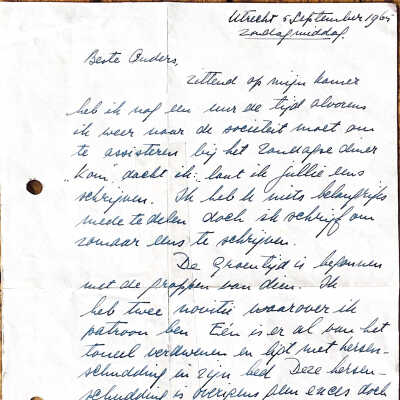 Utrecht 5 September 1965
zondagmiddag.
Beste Ouders,
zittend op mijn kamer
heb ik nog een uur de tijd alvorens
ik weer naar de sociëteit moet om
te assisteren bij het zondagse diner
"Kom" dacht ik "laat ik jullie eens
schrijven. Ik heb b niets belangrijks
mede te delen doch ik schrijf om
zomaar eens te schrijven.
De Groentijd is begonnen
met de grappen van dien. Ik
heb twee novitii waarover ik
patroon ben Eén is er al van het
toneel verdwenen en ligt met hersen-
schudding in zijn bed Deze hersen-
schudding is overigens geen exces doch